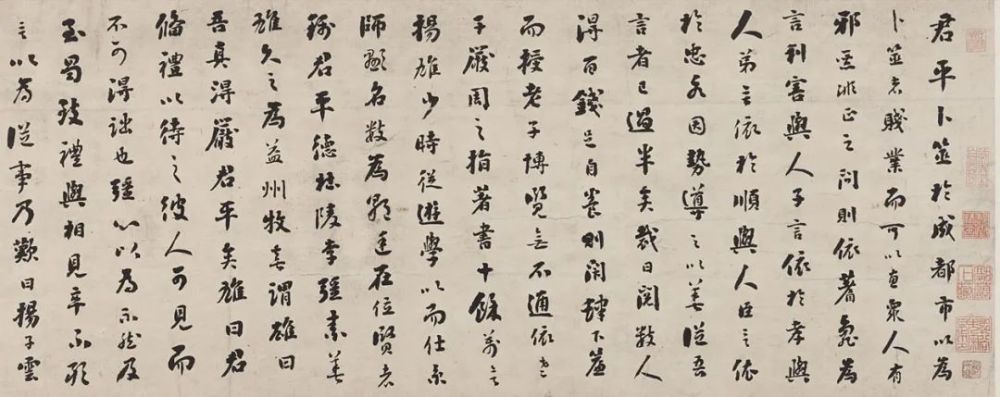 君平卜筮於成都市以為
卜筮者賤業而可以惠衆人有
邪惡非正之問則依蓍龜為
言利害與人子言依於孝與
人弟言依於順與人臣言依
於忠各因勢導之以善從吾
言者已過半矣裁日閱數人
得百錢足自養則閉肆下簾
而授老子博覽無不通依老
子嚴周之指著書十餘萬言
楊雄少時從遊學以而仕京
師顯名數為朝廷在位賢者
稱君平德杜陵李彊素善
雄久之為益州牧喜謂雄曰
吾真得嚴君平矣雄曰君
備禮以待之彼人可見而
不可得詘也彊心以為不然及
至蜀致禮與相見卒不敢
言以為從事乃歎曰楊子雲